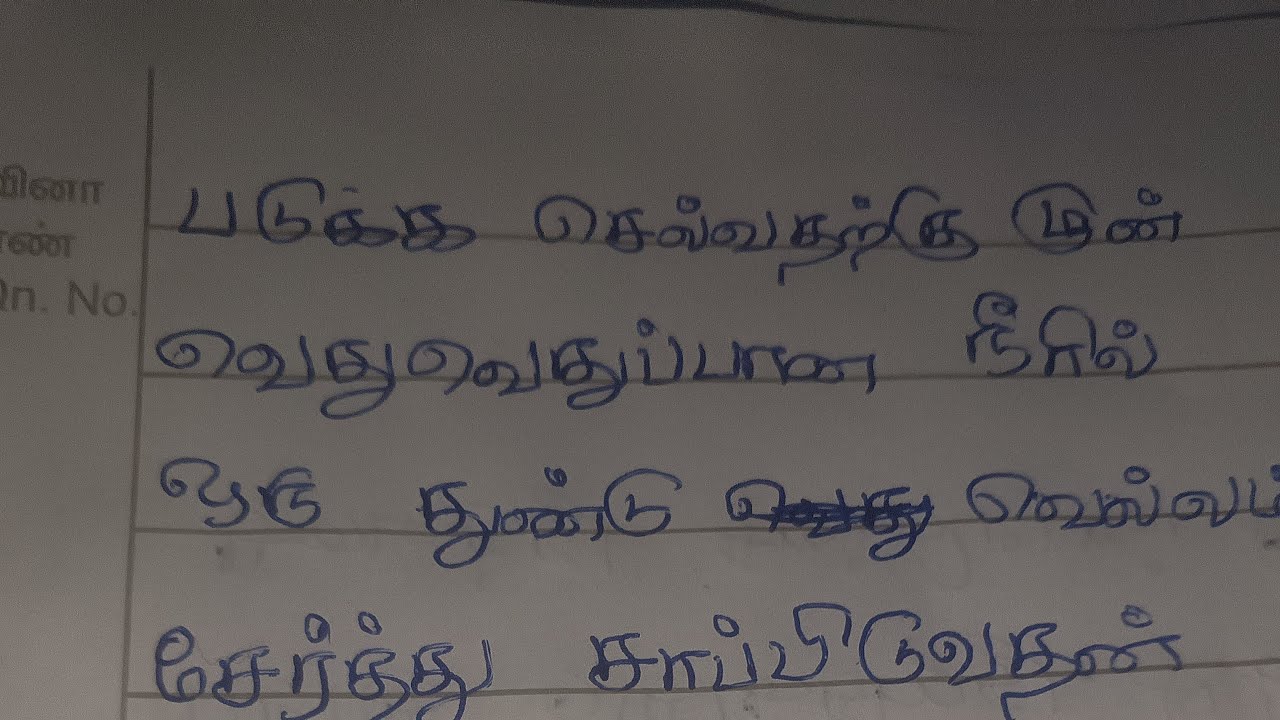 வினா
எண்
Qn. No.
படுக்க செல்வதற்கு முன்
வெதுவெதுப்பான நீரில்
ஒரு துண்டு வெல்லம்
சேர்த்து சாப்பிடுவதன்